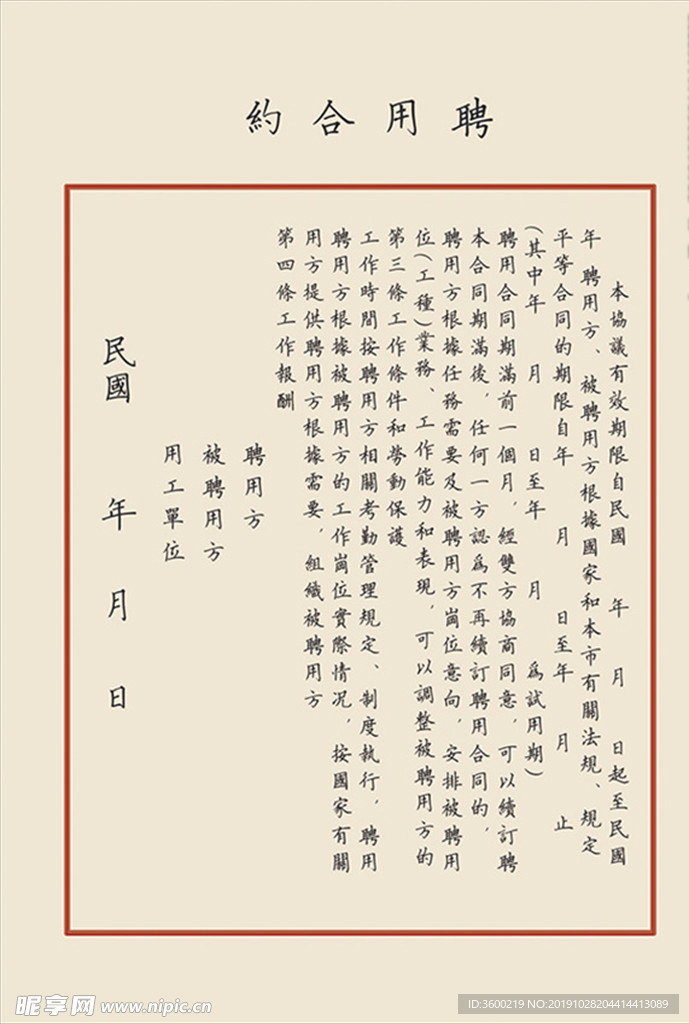 聘用合約
本協議有效期限自民國 年 月 日起至民國
年 聘用方、被聘用方根據國家和本市有關法規、規定
平等合同的期限自年 月 日至年 月 止
(其中年 月 日至年 月 為試用期)
聘用合同期滿前一個月，經雙方協商同意，可以續訂聘
本合同期滿後，任何一方認為不再續訂聘用合同的，
聘用方根據任務需要及被聘用方崗位意向，安排被聘用
位(工種)業務、工作能力和表現，可以調整被聘用方的
第三條工作條件和勞動保護
工作時間按聘用方相關考勤管理規定、制度執行，聘用
聘用方根據被聘用方的工作崗位實際情況，按國家有關
用方提供聘用方根據需要，組織被聘用方
第四條工作報酬
聘用方
被聘用方
用工單位
民國 年 月 日
昵享网 www.nipic.cn
ID:3600219 NO:20191028204414413089